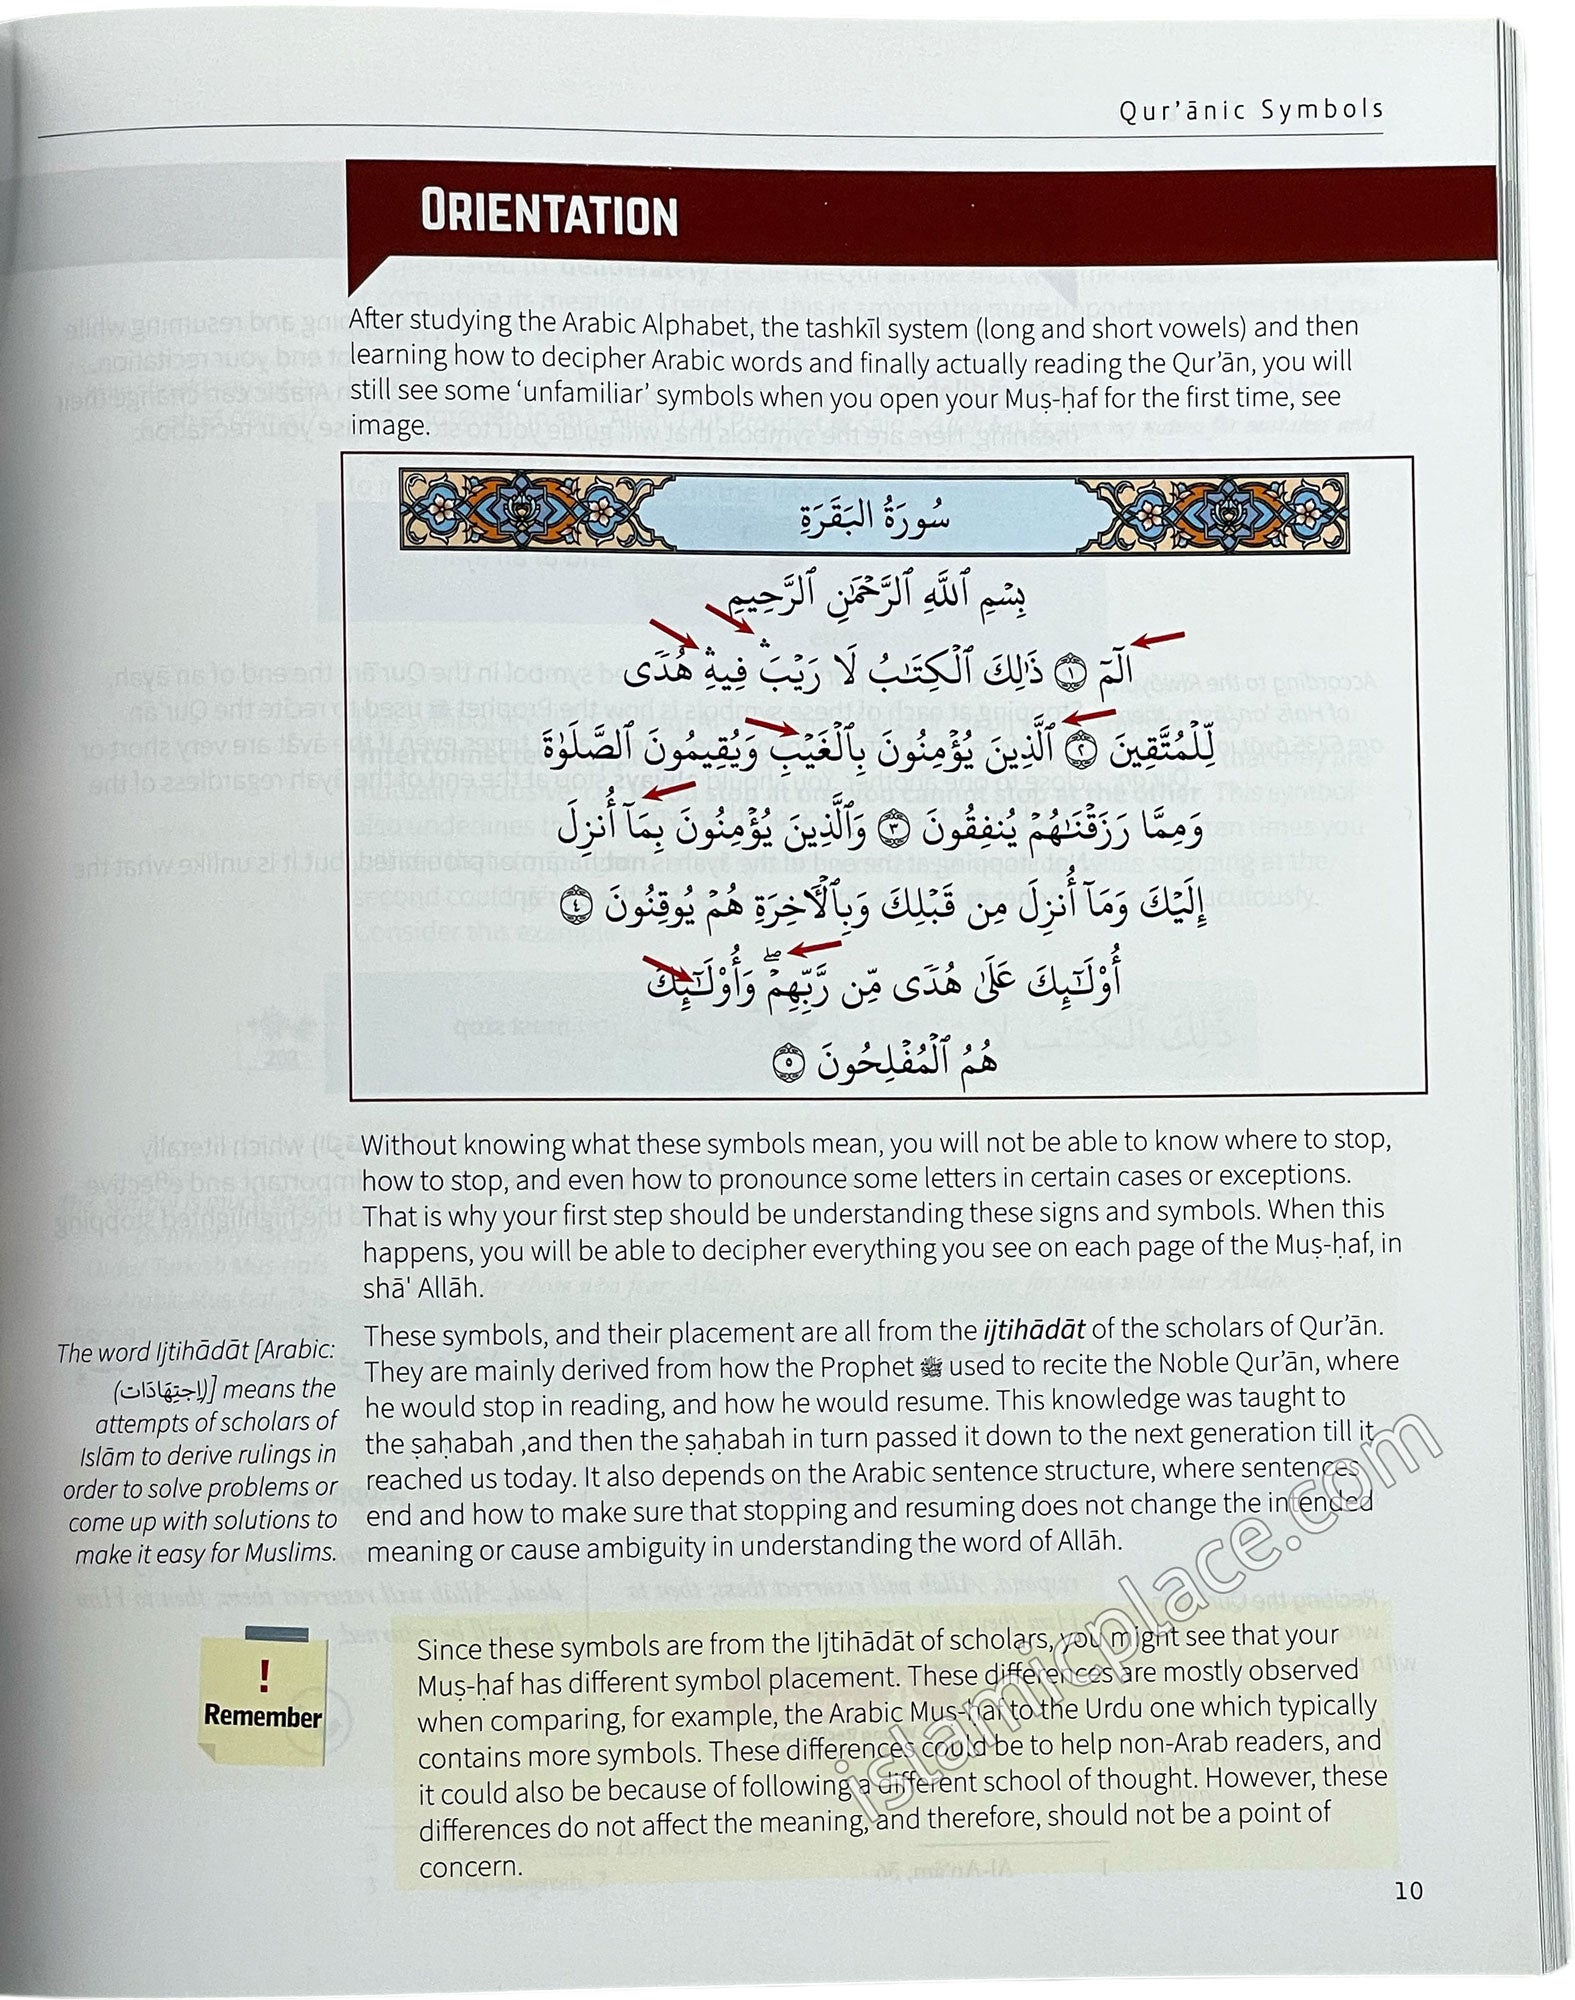 Qur'ānic Symbols
ORIENTATION
After studying the Arabic Alphabet, the tashkīl system (long and short vowels) and then
learning how to decipher Arabic words and finally actually reading the Qur'ān, you will
still see some 'unfamiliar' symbols when you open your Muṣ-ḥaf for the first time, see
image.
سُورَةُ البَقَرَةِ
بِسْمِ ٱللَّهِ ٱلرَّحْمَٰنِ ٱلرَّحِيمِ
الٓمٓ ١ ذَٰلِكَ ٱلْكِتَٰبُ لَا رَيْبَ ۛ فِيهِ ۛ هُدًى
لِّلْمُتَّقِينَ ٢ ٱلَّذِينَ يُؤْمِنُونَ بِٱلْغَيْبِ وَيُقِيمُونَ ٱلصَّلَوٰةَ
وَمِمَّا رَزَقْنَٰهُمْ يُنفِقُونَ ٣ وَٱلَّذِينَ يُؤْمِنُونَ بِمَآ أُنزِلَ
إِلَيْكَ وَمَآ أُنزِلَ مِن قَبْلِكَ وَبِٱلْأَخِرَةِ هُمْ يُوقِنُونَ ٤
أُوْلَٰٓئِكَ عَلَىٰ هُدًى مِّن رَّبِّهِمْ ۖ وَأُوْلَٰٓئِكَ
هُمُ ٱلْمُفْلِحُونَ ٥
Without knowing what these symbols mean, you will not be able to know where to stop,
how to stop, and even how to pronounce some letters in certain cases or exceptions.
That is why your first step should be understanding these signs and symbols. When this
happens, you will be able to decipher everything you see on each page of the Muṣ-ḥaf, in
shā' Allāh.
These symbols, and their placement are all from the ijtihādāt of the scholars of Qur'ān.
They are mainly derived from how the Prophet ﷺ used to recite the Noble Qur'ān, where
he would stop in reading, and how he would resume. This knowledge was taught to
the ṣaḥabah ,and then the ṣaḥabah in turn passed it down to the next generation till it
reached us today. It also depends on the Arabic sentence structure, where sentences
end and how to make sure that stopping and resuming does not change the intended
meaning or cause ambiguity in understanding the word of Allāh.
The word Ijtihādāt [Arabic:
(اِجتِهَادَات)] means the
attempts of scholars of
Islām to derive rulings in
order to solve problems or
come up with solutions to
make it easy for Muslims.
!
Remember
Since these symbols are from the Ijtihādāt of scholars, you might see that your
Muṣ-ḥaf has different symbol placement. These differences are mostly observed
when comparing, for example, the Arabic Muṣ-ḥaf to the Urdu one which typically
contains more symbols. These differences could be to help non-Arab readers, and
it could also be because of following a different school of thought. However, these
differences do not affect the meaning, and therefore, should not be a point of
concern.
10
islamicplace.com